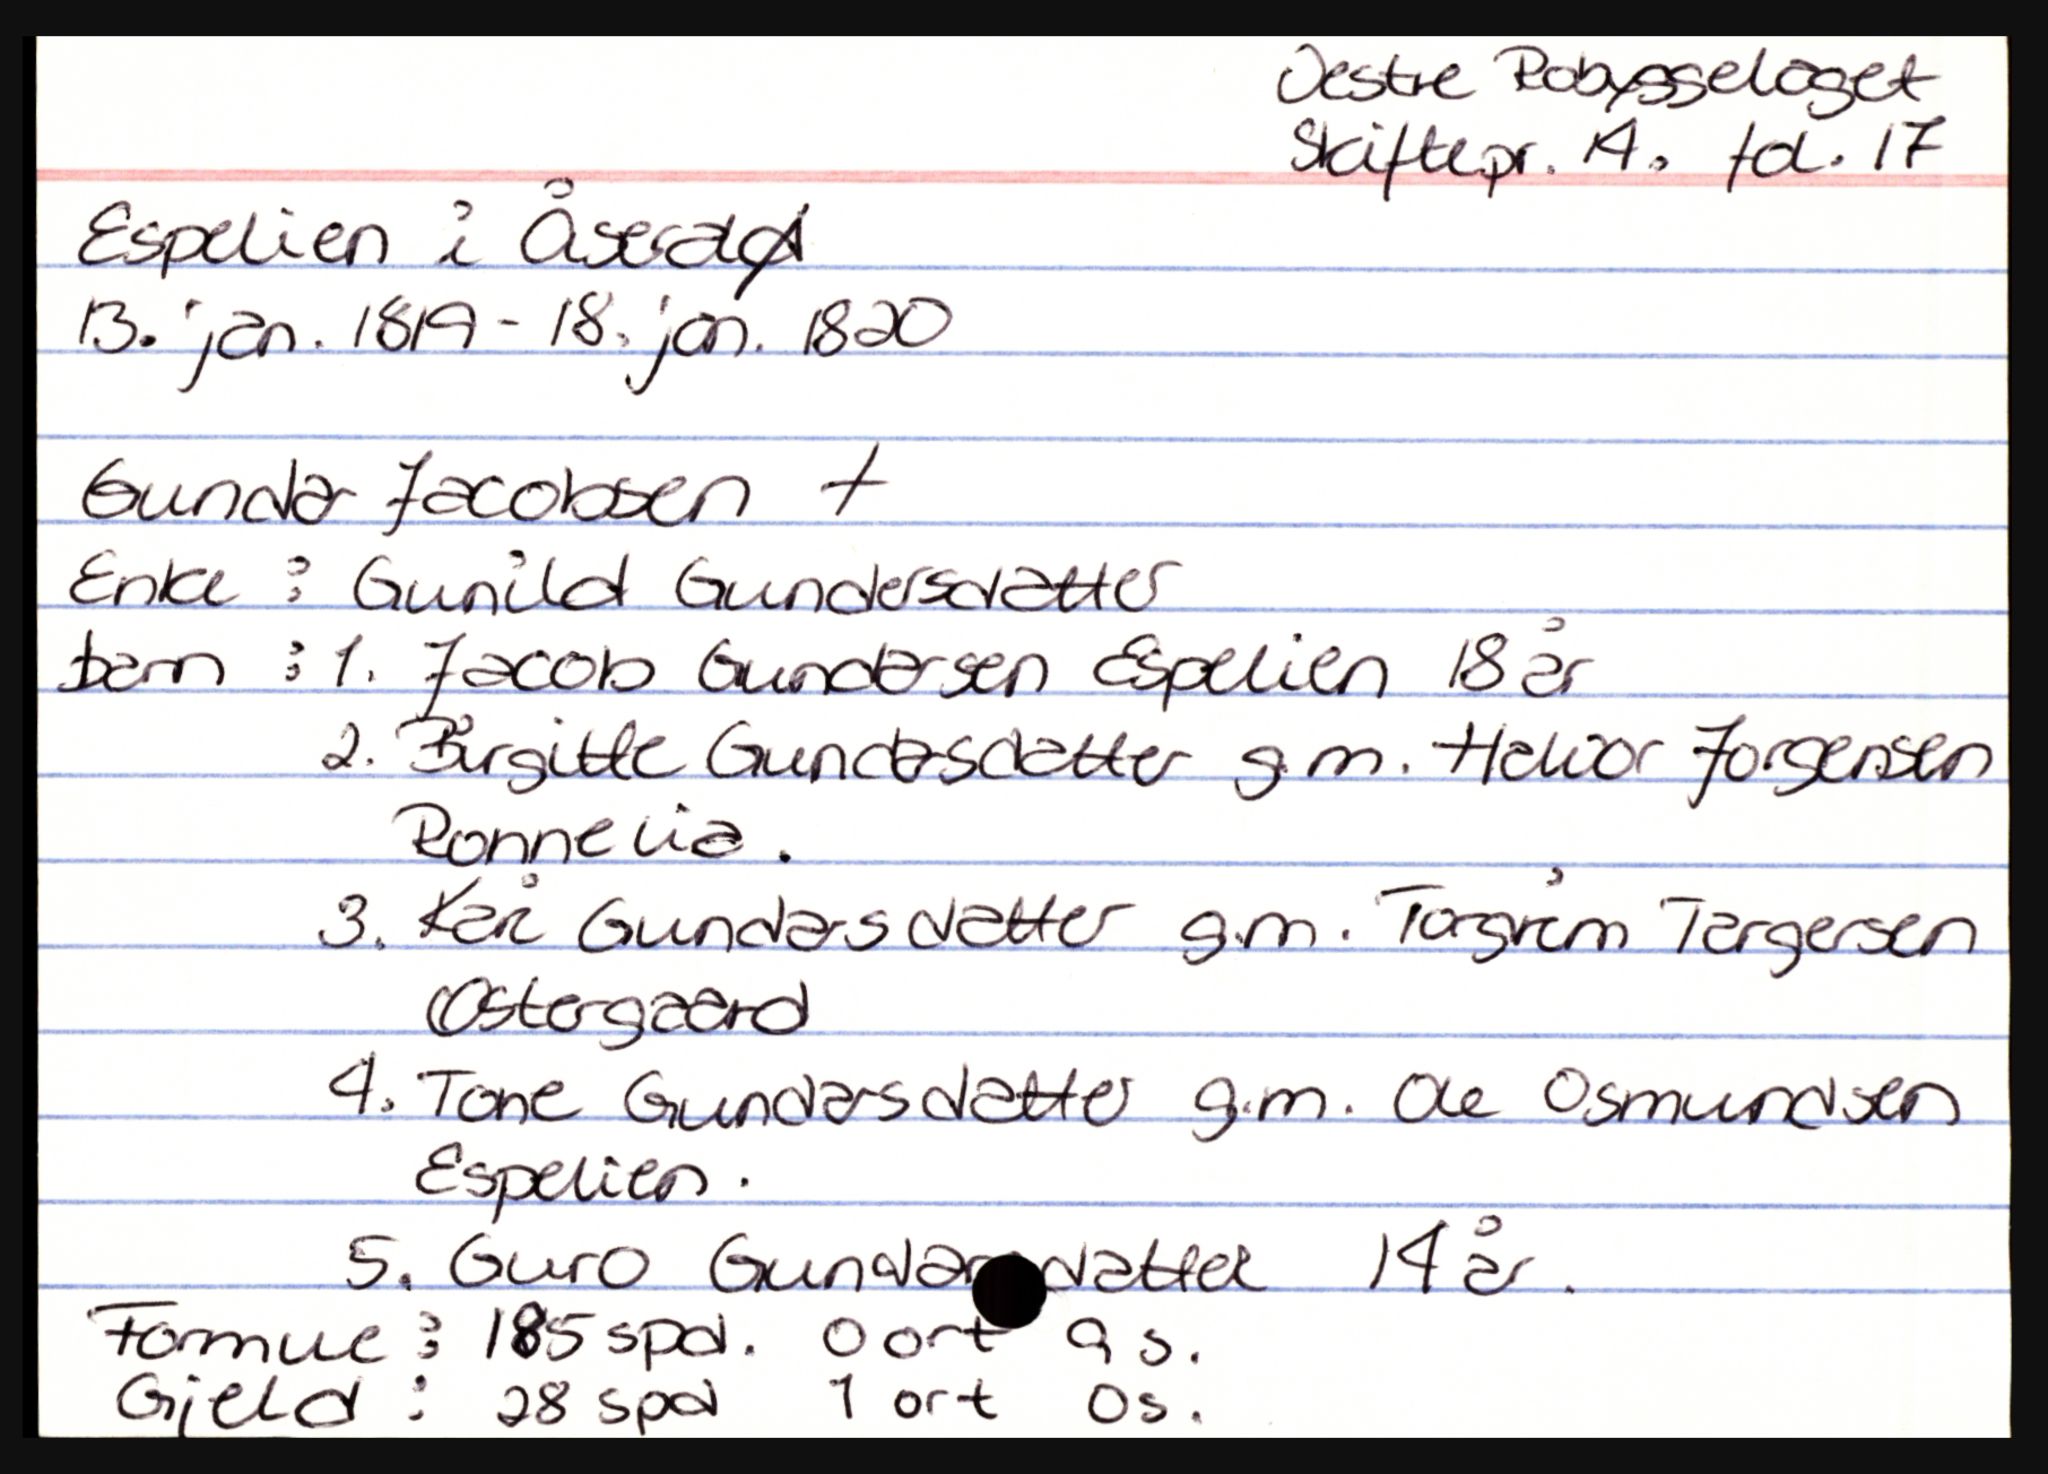 Vestre Robyggelaget
Skiftepr. A. fol. 17
Espelien i Åseral
13. jan. 1819 - 18. jan. 1820
Gunder Jacobsen +
Enke : Gunild Gundersdatter
barn : 1. Jacob Gundersen Espelien 18 år
2. Birgitte Gundersdatter g.m. Halvor Jorgensen
Ronnelia.
3. Kari Gundersdatter g.m. Torgrim Tergersen
Ostergaard
4. Tone Gundersdatter g.m. Ole Osmundsen
Espelien.
5. Guro Gundersdatter 14 år.
Formue : 185 spd. 0 ort 9 s.
Gjeld : 28 spd 1 ort 0s.